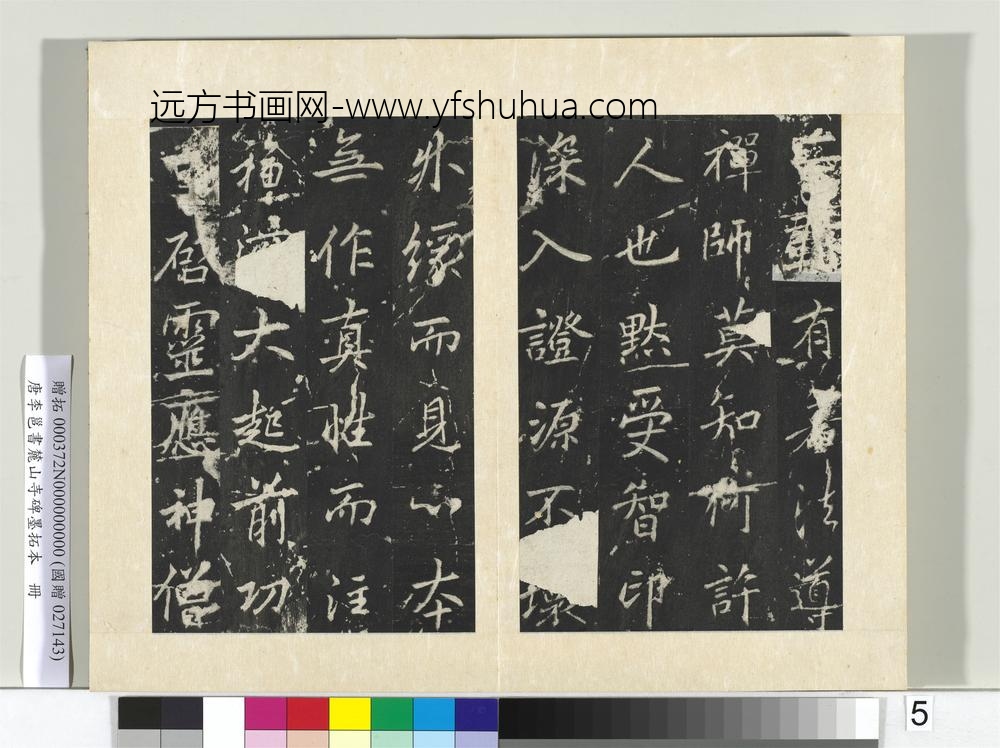 远方书画网-www.yfshuhua.com
有若法導
禪師莫知何許
人也黙受智印
深入證源不壞
外緣而見心本
無作真性而注
福大起前功
啓靈應神僧
贈拓 000372N000000000 (國贈 027143)
唐李邕書麓山寺碑墨拓本 冊
5